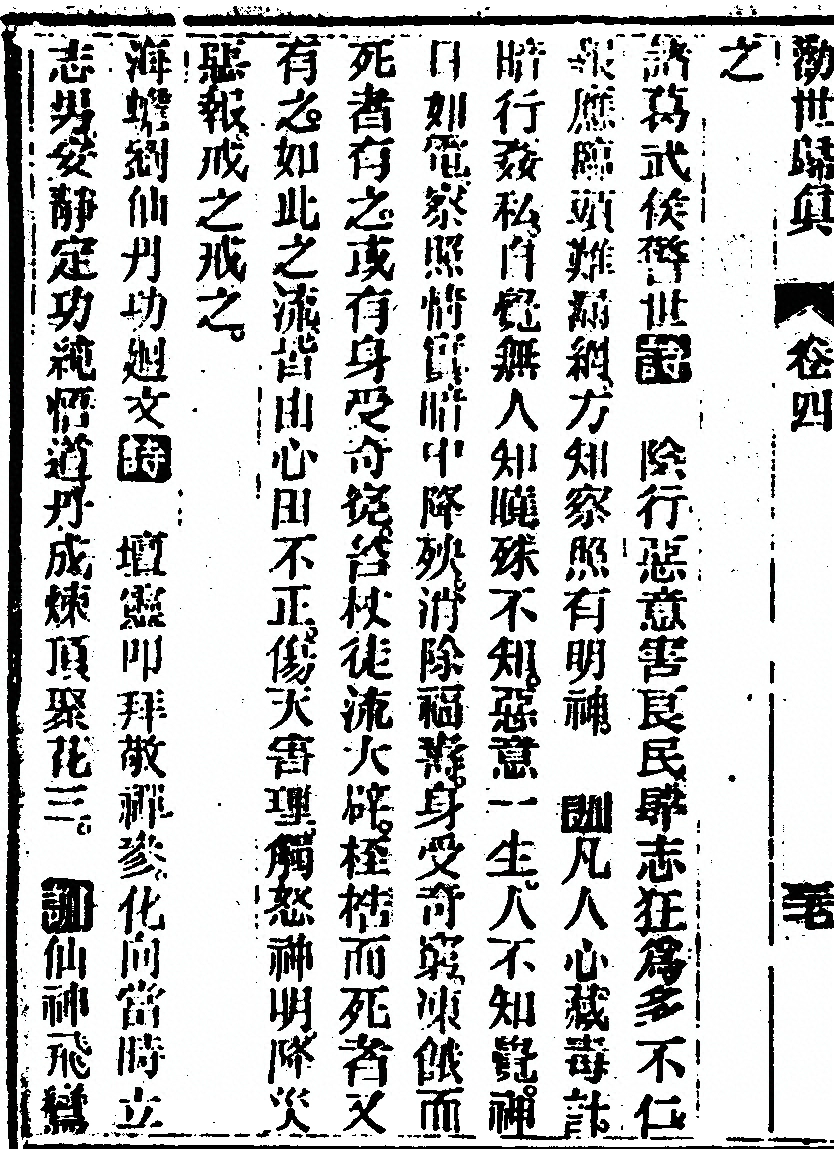 渤世歸真 卷四 三七
之
諸葛武侯警世詩 陰行惡意害良民肆志狂為多不仁
報應臨頭難漏網方知察照有明神 訓凡人心藏毒計
暗行姦私自覺無人知曉殊不知惡意一生人不知覺神
目如電察照情實暗中降殃消除福壽身受奇窮凍餓而
死者有之或有身受奇冤笞杖徒流大辟桎梏而死者又
有之如此之流皆由心田不正傷天害理觸怒神明降災
惡報戒之戒之
海蟾劉仙丹功迴文詩 壇靈叩拜敬禪參化向當時立
志男安靜定功純悟道丹成煉頂聚花三 訓仙神飛鸞